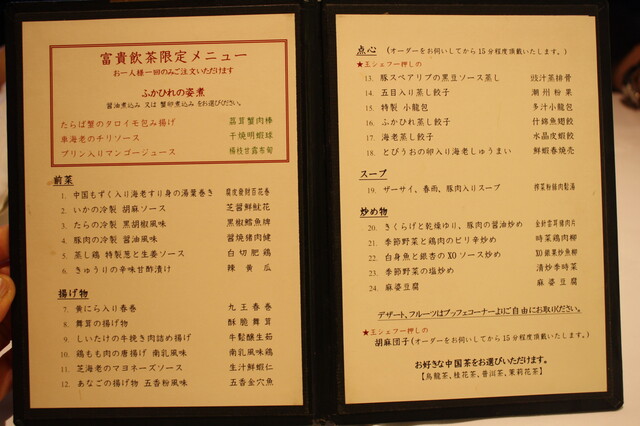 富貴飲茶限定メニュー
お一人様一回のみご注文いただけます
ふかひれの姿煮
醤油煮込み 又は 蟹卵煮込み をお選びください。
たらば蟹のタロイモ包み揚げ 荔茸蟹肉棒
車海老のチリソース 干焼明蝦球
プリン入りマンゴージュース 楊枝甘露布甸
前菜
1. 中国もずく入り海老すり身の湯葉巻き 腐皮發財百花巻
2. いかの冷製 胡麻ソース 芝醤鮮魷花
3. たらの冷製 黒胡椒風味 黒椒鱈魚牌
4. 豚肉の冷製 醤油風味 醤焼猪肉健
5. 蒸し鶏 特製葱と生姜ソース 白切肥鶏
6. きゅうりの辛味甘酢漬け 辣黄瓜
揚げ物
7. 黄にら入り春巻 九王春巻
8. 舞茸の揚げ物 酥脆舞茸
9. しいたけの牛挽き肉詰め揚げ 牛鬆醸生茹
10. 鶏もも肉の唐揚げ 南乳風味 南乳風味鶏
11. 芝海老のマヨネーズソース 生汁鮮蝦仁
12. あなごの揚げ物 五香粉風味 五香金穴魚
点心 (オーダーをお伺してから15分程度頂戴いたします。)
★王シェフ一押しの
13. 豚スペアリブの黒豆ソース蒸し 豉汁蒸排骨
14. 五目入り蒸し餃子 潮州粉果
15. 特製 小籠包 多汁小籠包
16. ふかひれ蒸し餃子 什錦魚翅餃
17. 海老蒸し餃子 水晶皮蝦餃
18. とびうおの卵入り海老しゅうまい 鮮蝦春焼売
スープ
19. ザーサイ、春雨、豚肉入りスープ 搾菜粉絲肉鬆湯
炒め物
20. きくらげと乾燥ゆり、豚肉の醤油炒め 金針雲耳猪肉片
21. 季節野菜と鶏肉のピリ辛炒め 時菜鶏肉柳
22. 白身魚と銀杏のXOソース炒め XO銀果炒魚柳
23. 季節野菜の塩炒め 清炒季時菜
24. 麻婆豆腐 麻婆豆腐
デザート、フルーツはブッフェコーナーよりご自由にお取りください。
★王シェフ一押しの
胡麻団子(オーダーをお伺してから15分程度頂戴いたします。)
お好きな中国茶をお選びいただけます。
【烏龍茶、桂花茶、普洱茶、茉莉花茶】